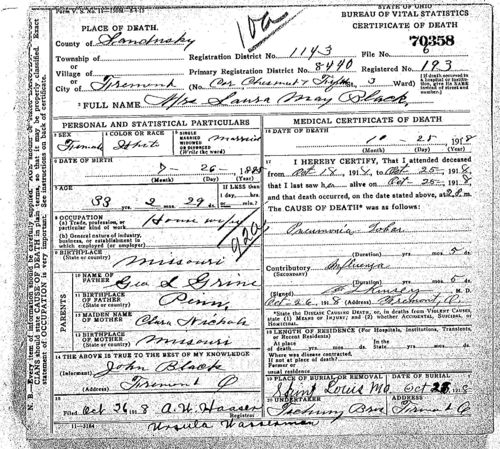 STATE OF OHIO
BUREAU OF VITAL STATISTICS
CERTIFICATE OF DEATH
10a
PLACE OF DEATH.
County of Sandusky
Township of
Registration District No. 1143
File No.
70358
6
Village of
Primary Registration District No. 8440
Registered No. 193
City of Fremont
Cor Chesnut &
3 Ward)
FULL NAME Mrs Laura May Black
PERSONAL AND STATISTICAL PARTICULARS
SEX
Female
COLOR OR RACE
White
SINGLE MARRIED WIDOWED OR DIVORCED (Write the word)
Married
DATE OF BIRTH
7 - 26 - 1885
(Month) (Day) (Year)
AGE
33 yrs. 2 mos. 29 ds.
If LESS than 1 day
OCCUPATION
(a) Trade, profession, or particular kind of work
House wife
(b) General nature of industry, business, or establishment in which employed (or employer)
92a
BIRTHPLACE
(State or country)
Missouri
PARENTS
10 NAME OF FATHER
Geo S Grine
11 BIRTHPLACE OF FATHER
(State or country)
Penn.
12 MAIDEN NAME OF MOTHER
Clara Nichols
13 BIRTHPLACE OF MOTHER
(State or country)
Missouri
14 THE ABOVE IS TRUE TO THE BEST OF MY KNOWLEDGE
(Informant) John Black
(Address) Fremont O
Filed Oct 26 1918 A. W. Haaser
11-3184
Ursula Wasserman
MEDICAL CERTIFICATE OF DEATH
16 DATE OF DEATH
10 - 25 - 1918
(Month) (Day) (Year)
17 I HEREBY CERTIFY, That I attended deceased
from Oct 18, 1918, to Oct-25-, 1918
that I last saw her alive on Oct-25-, 1918
and that death occurred, on the date stated above, at
The CAUSE OF DEATH* was as follows:
Pneumonia Lobar
(Duration) yrs. mos. 5 ds.
Contributory Influenza
(Secondary)
(Duration) yrs. mos. ds.
(Signed) M. D.
Oct-26, 1918 (Address) Fremont, O.
*State the DISEASE CAUSING DEATH, or, in deaths from VIOLENT CAUSES, state (1) MEANS OF INJURY; and (2) whether ACCIDENTAL, SUICIDAL, or HOMICIDAL.
18 LENGTH OF RESIDENCE (For Hospitals, Institutions, Transients, or Recent Residents)
At place of death yrs. mos. ds.
In the State yrs. mos. ds.
Where was disease contracted, if not at place of death?
Former or usual residence
19 PLACE OF BURIAL OR REMOVAL
Saint Louis Mo.
DATE OF BURIAL
Oct 28 1918
20 UNDERTAKER
Bros
ADDRESS
Fremont O